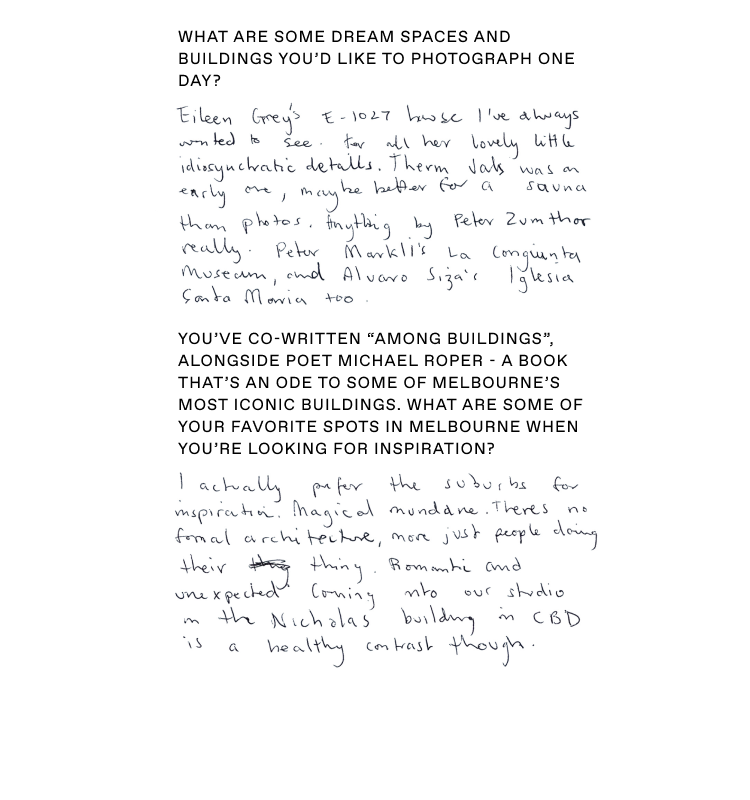 WHAT ARE SOME DREAM SPACES AND
BUILDINGS YOU'D LIKE TO PHOTOGRAPH ONE
DAY?
Eileen Grey's E-1027 house I've always
wanted to see. For all her lovely little
idiosynchratic details. Therm Vals was an
early one, maybe better for a sauna
than photos. Anything by Peter Zumthor
really. Peter Markli's La Congiunta
Museum, and Alvaro Siza's Iglesia
Santa Maria too.
YOU'VE CO-WRITTEN “AMONG BUILDINGS”,
ALONGSIDE POET MICHAEL ROPER - A BOOK
THAT'S AN ODE TO SOME OF MELBOURNE'S
MOST ICONIC BUILDINGS. WHAT ARE SOME OF
YOUR FAVORITE SPOTS IN MELBOURNE WHEN
YOU'RE LOOKING FOR INSPIRATION?
I actually prefer the suburbs for
inspiration. Magical mundane. Theres no
formal architecture, more just people doing
their thing. Romantic and
unexpected. Coming into our studio
in the Nicholas building in CBD
is a healthy contrast though.